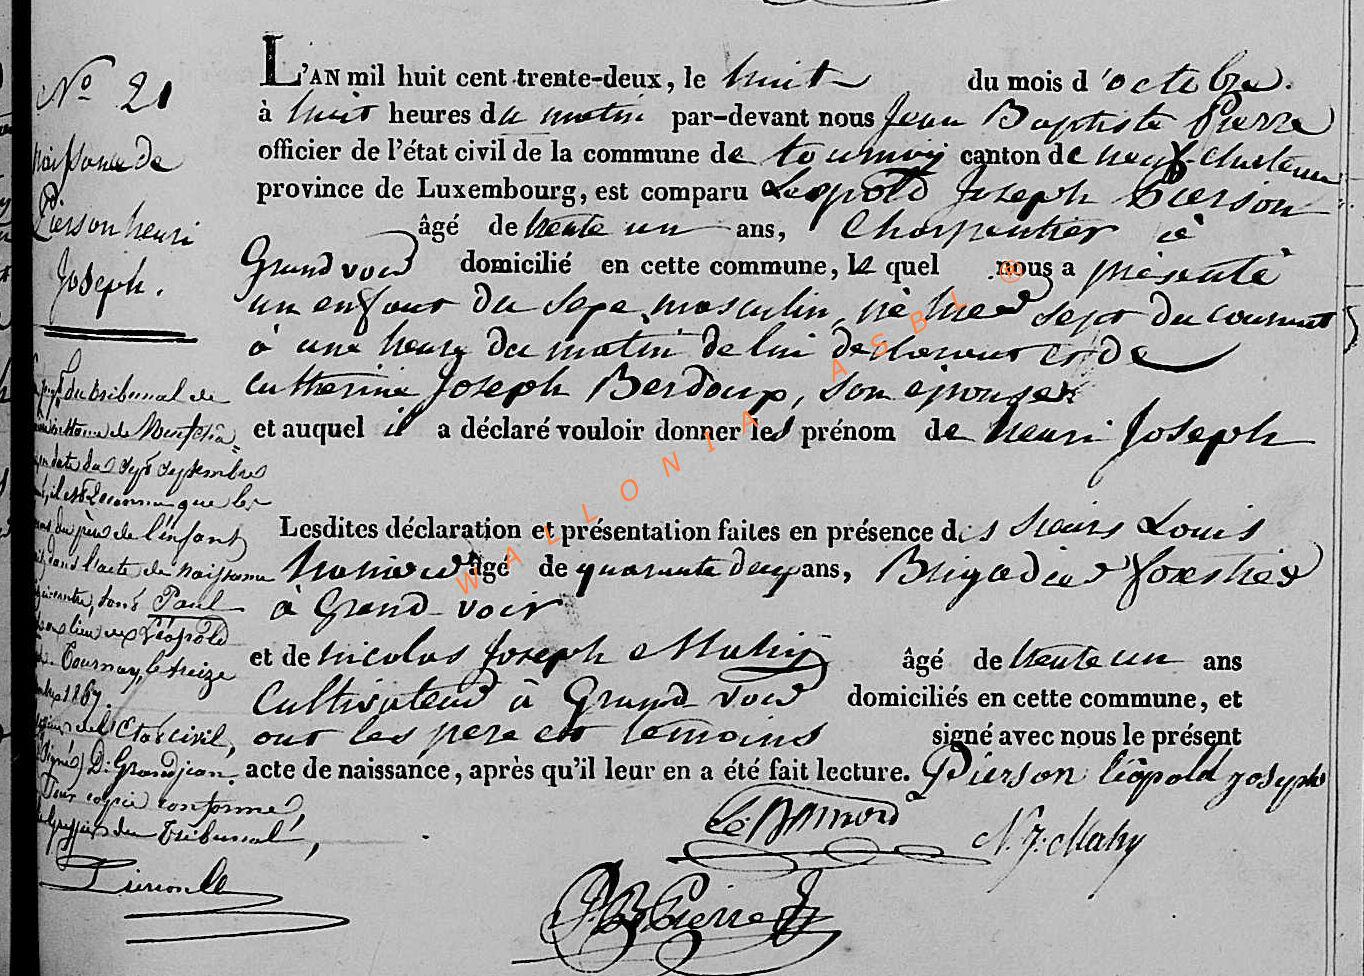 N° 21
naissance de
Pierson henri
Joseph.
L'AN mil huit cent trente-deux, le huit du mois d'octobre.
à huit heures du matin par-devant nous Jean Baptiste Pierre
officier de l'état civil de la commune de tournay canton de neufchateau
province de Luxembourg, est comparu Léopold Joseph Pierson
âgé de trente un ans, Charpentier à
Grandvoir domicilié en cette commune, le quel nous a présenté
un enfant du sexe masculin, né hier sept du courant
à une heure du matin de lui déclarant et de
Catherine Joseph Berdoux, son épouse
et auquel il a déclaré vouloir donner les prénom de henri Joseph
Lesdites déclaration et présentation faites en présence des sieurs Louis
âgé de quarante deux ans, Brigadier forestier
à Grand-voir
et de nicolas Joseph Mahy âgé de trente un ans
Cultivateur à Grand voir domiciliés en cette commune, et
ont les pere et témoins signé avec nous le présent
acte de naissance, après qu'il leur en a été fait lecture. Pierson léopold joseph
N. J. Mahy
J B Pierre
du tribunal de
de Neufchâ=
en date du sept septembre
il est reconnu que les
du père de l'enfant
dans l'acte de naissance
sont Paul
au lieu de Léopold
Tournay, le treize
1867.
de l'Etat civil,
(Signé) D. Grandjean.
Pour copie conforme,
Le Greffier du Tribunal,
WALLONIA ASBL ®